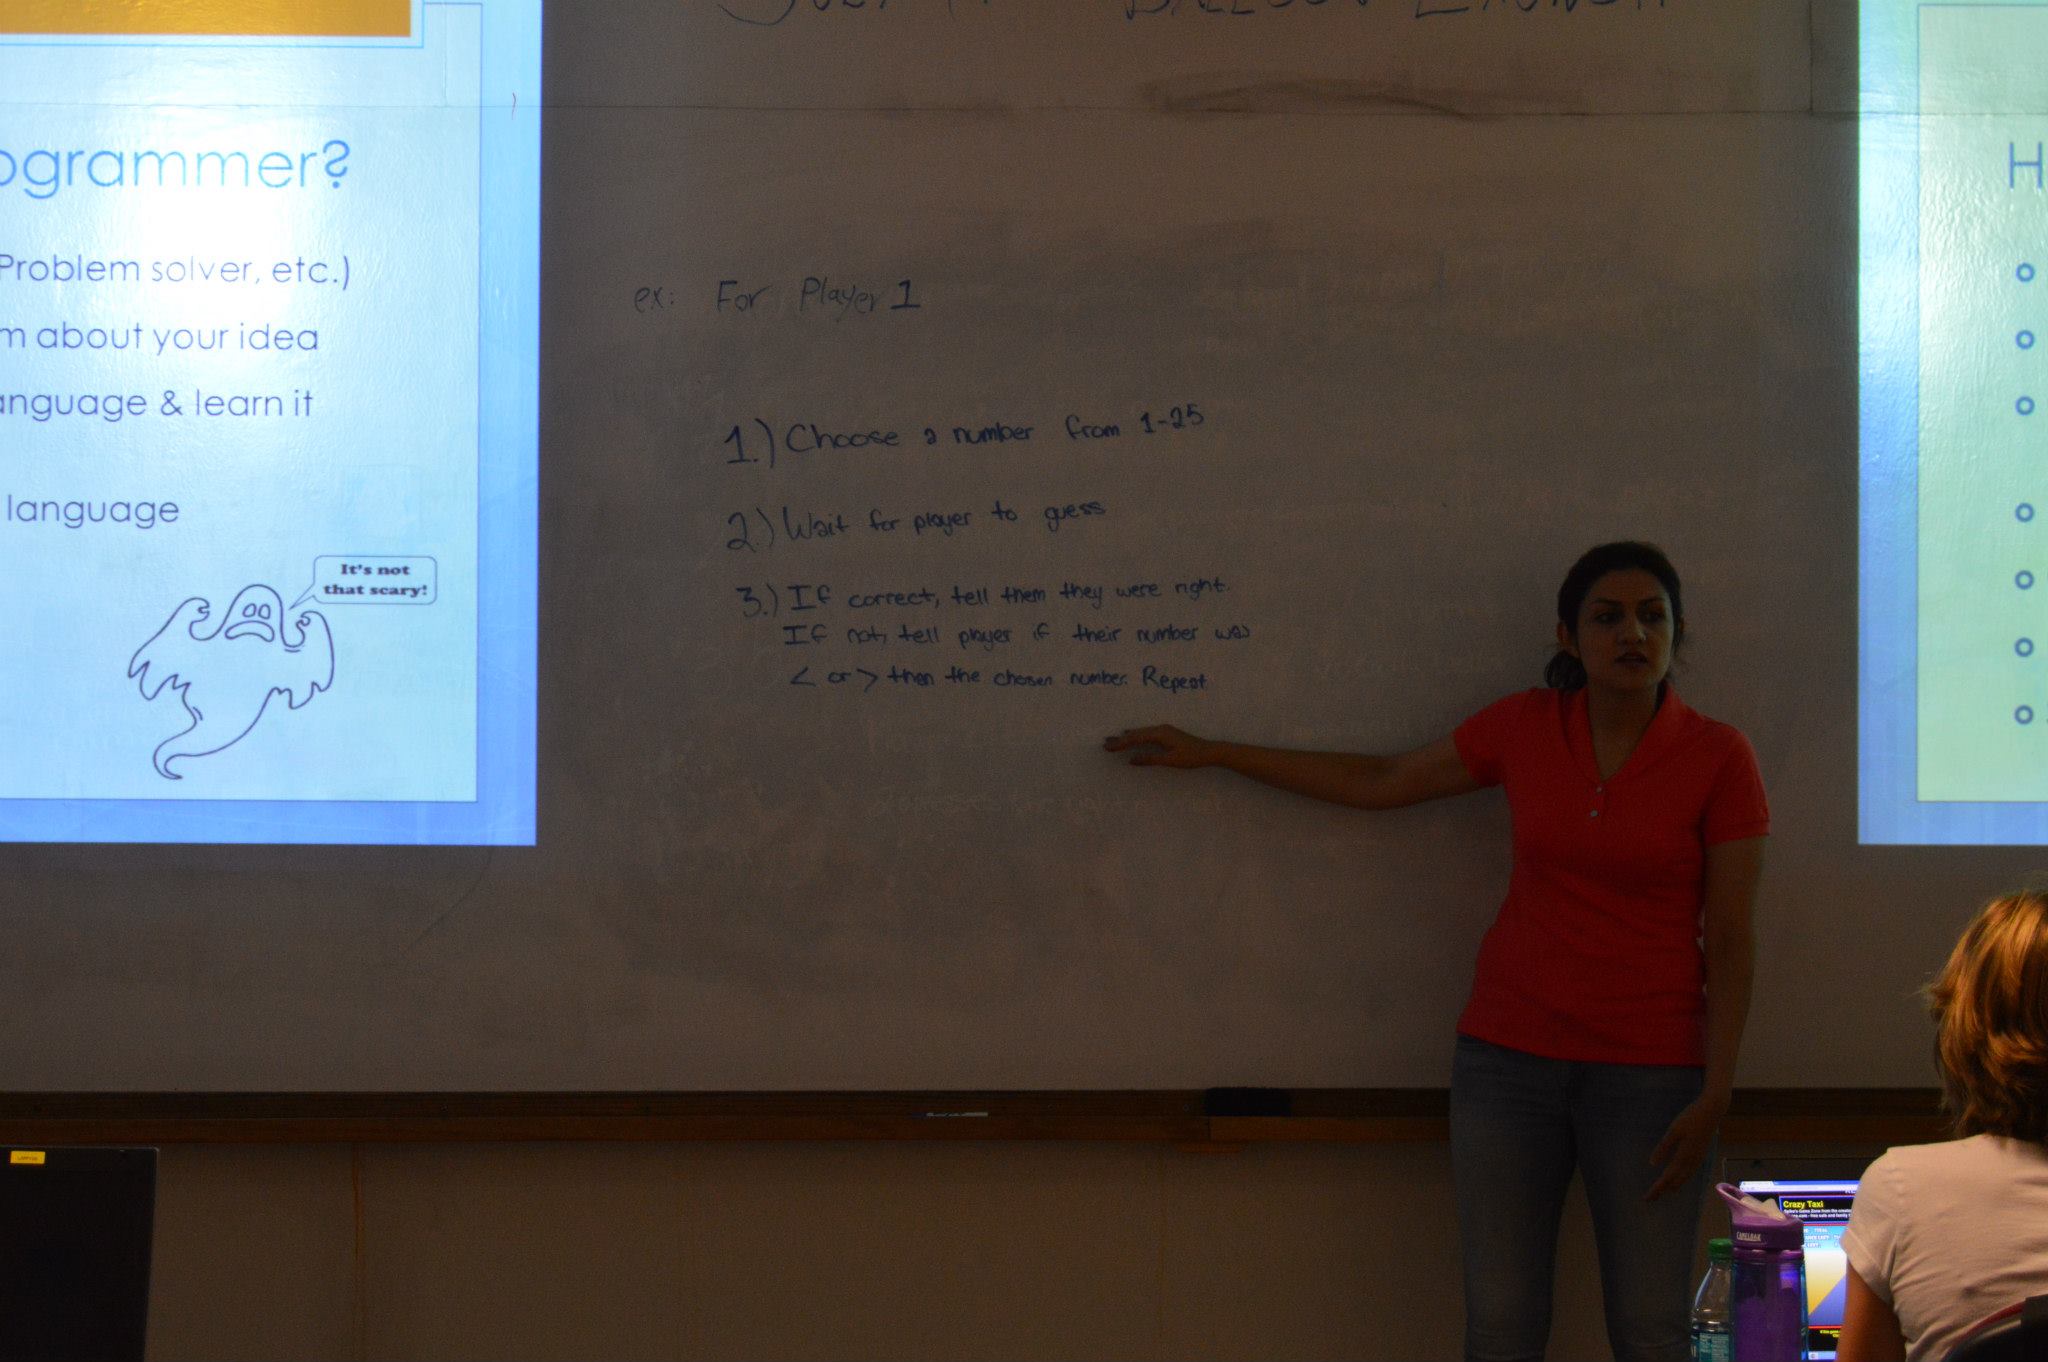 ogrammer?
Problem solver, etc.)
m about your idea
anguage & learn it
language
It's not
that scary!
ex: For Player 1
1.) Choose a number from 1-25
2.) Wait for player to guess
3.) If correct, tell them they were right.
If not, tell player if their number was
< or > then the chosen number. Repeat
H
Crazy Taxi
CAMELBAK